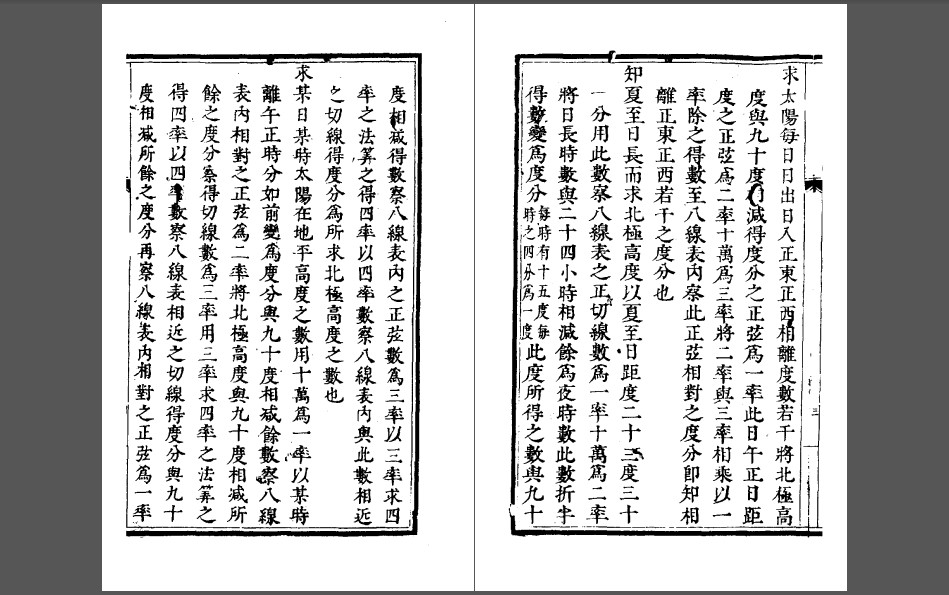 求太陽每日日出日入正東正西相離度數若干將北極高
度與九十度相減得度分之正弦為一率此日午正日距
度之正弦為二率十萬為三率將二率與三率相乘以一
率除之得數至八線表內察此正弦相對之度分卽知相
離正東正西若干之度分也
知夏至日長而求北極高度以夏至日距度二十三度三十
一分用此數察八線表之正切線數為一率十萬為二率
將日長時數與二十四小時相減餘為夜時數此數折半
得數變為度分每時有十五度每時之四分為一度此度所得之數與九十
度相減得數察八線表內之正弦數為三率以三率求四
率之法算之得四率以四率數察八線表內與此數相近
之切線得度分為所求北極高度之數也
求某日某時太陽在地平高度之數用十萬為一率以某時
離午正時分如前變為度分與九十度相減餘數察八線
表內相對之正弦為二率將北極高度與九十度相減所
餘之度分察得切線數為三率用三率求四率之法算之
得四率以四率數察八線表相近之切線得度分與九十
度相減所餘之度分再察八線表內相對之正弦為一率
三